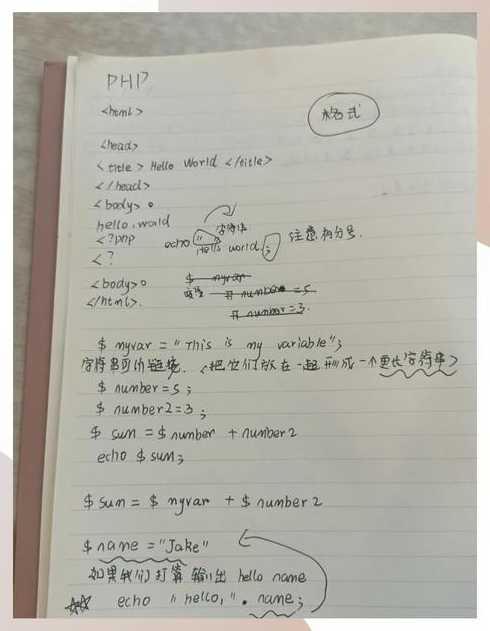 PHP
<html>
格式
<head>
<title> Hello World </title>
</head>
<body>
hello.world
字符串
<?php echo "Hello world"; 注意有分号.
<?
<body>
$ myvar
# number = 5
</html>.
# number = 3.
$ myvar = "This is my variable";
字符串可以链接. (把它们放在一起形成一个更长字符串)
$ number = 5;
$ number2 = 3;
$ sum = $ number + number2
echo $ sum;
$ sum = $ myvar + $ number2
$ name = "Jake"
如果我们打算输出 hello name
echo "hello,". name;